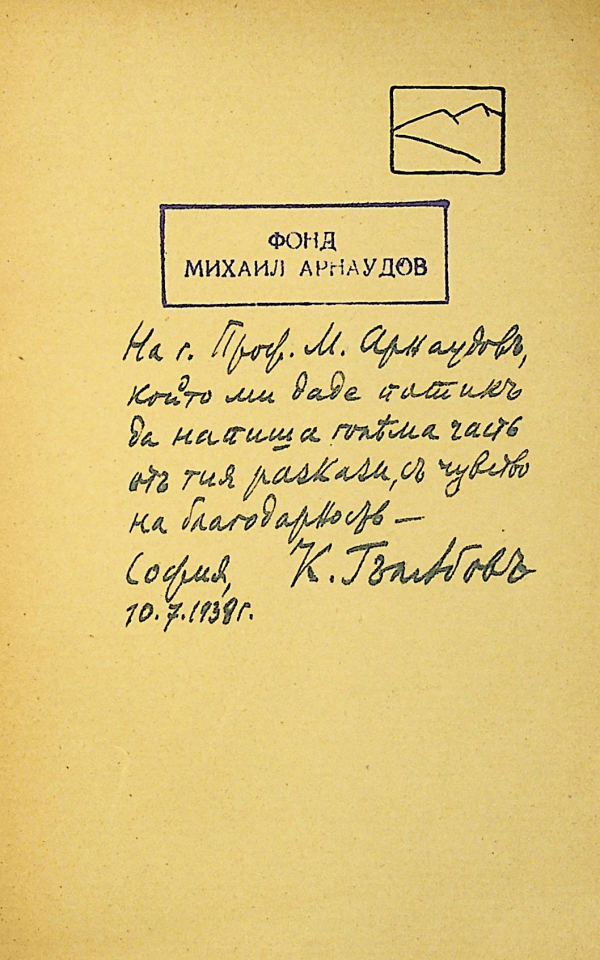 ФОНД
МИХАИЛ АРНАУДОВ
На г. Проф. М. Арнаудовъ,
който ми даде потикъ
да напиша голѣма часть
отъ тия разкази, съ чувство
на благодарность —
София, К. Гълѫбовъ
10.7.1938г.